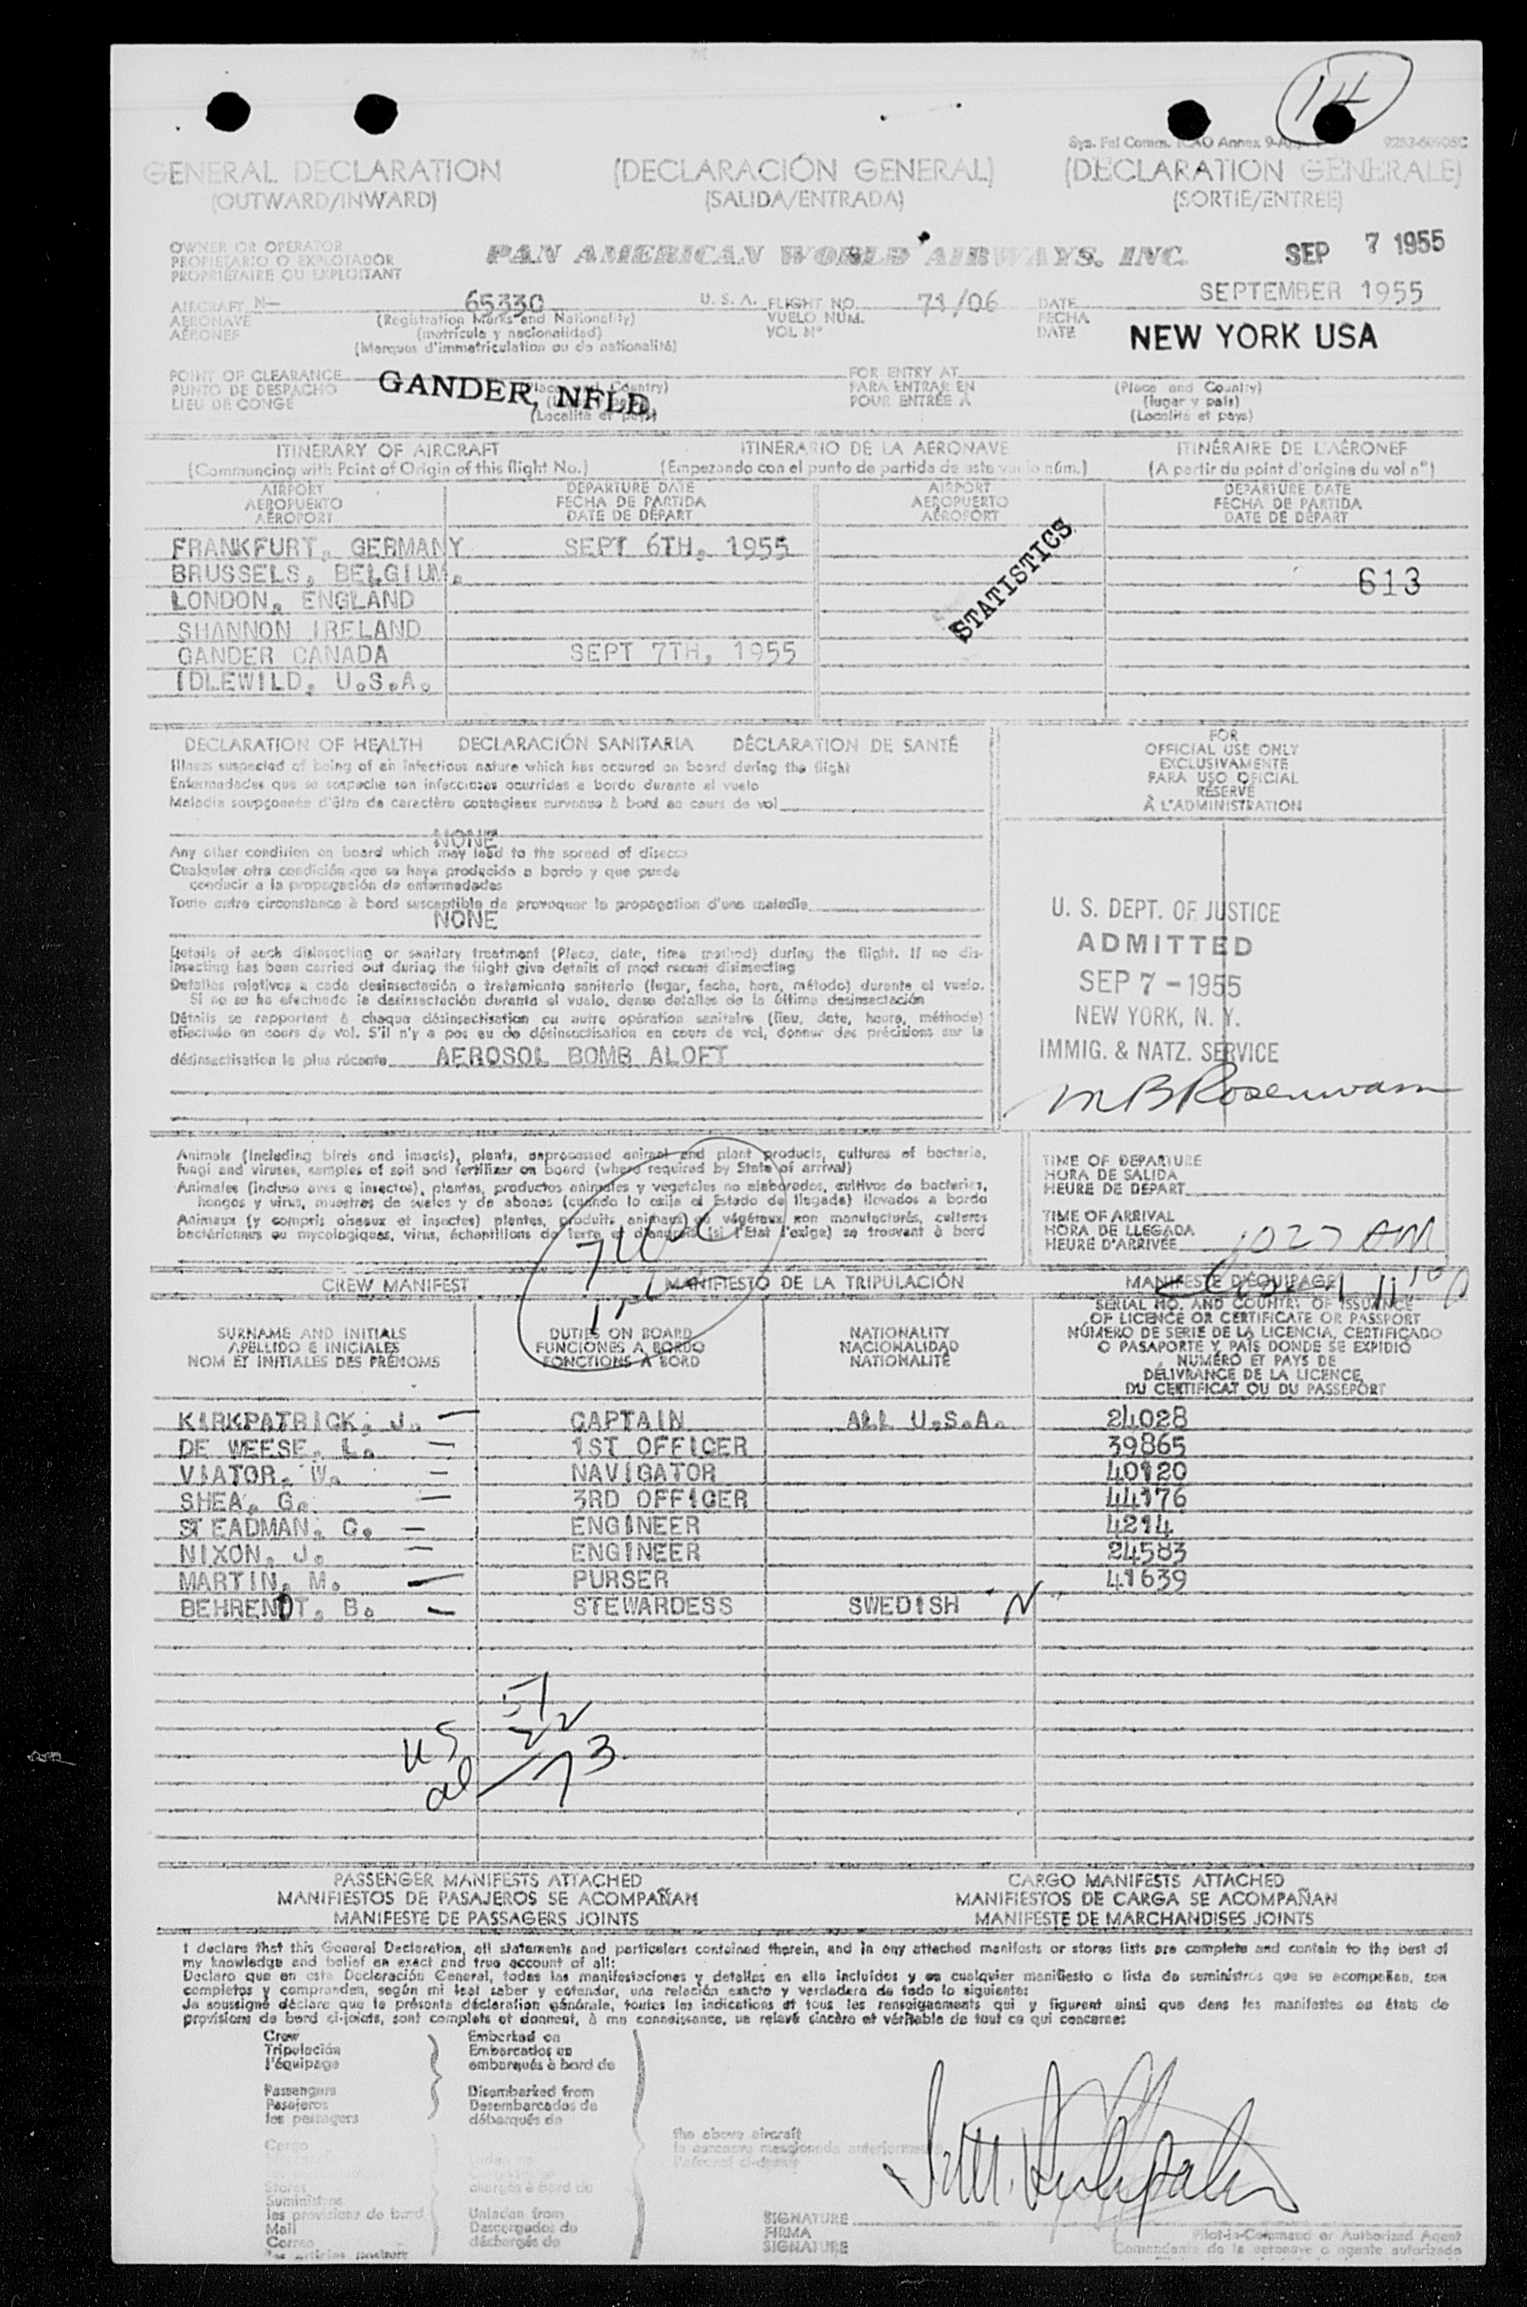 14
Sys. Fal Comm. ICAO Annex 9-App.
GENERAL DECLARATION (DECLARACIÓN GENERAL) (DECLARATION GENERALE)
(OUTWARD/INWARD) (SALIDA/ENTRADA) (SORTIE/ENTREE)
OWNER OR OPERATOR
PROPIETARIO O EXPLOTADOR
PROPRIÉTAIRE OU EXPLOITANT
PAN AMERICAN WORLD AIRWAYS, INC. SEP 7 1955
AIRCRAFT N- 65330 U. S. A. FLIGHT NO. 71/06 DATE SEPTEMBER 1955
AERONAVE (Registration Marks and Nationality) VUELO NUM. FECHA
AÉRONEF (matrícula y nacionalidad) VOL Nº DATE
(Marques d'immatriculation ou de nationalité)
NEW YORK USA
POINT OF CLEARANCE GANDER, NFLD. (Place and Country) FOR ENTRY AT (Place and Country)
PUNTO DE DESPACHO PARA ENTRAR EN (lugar y país)
LIEU DE CONGÉ (Localité et pays) POUR ENTRÉE À (Localité et pays)
ITINERARY OF AIRCRAFT ITINERARIO DE LA AERONAVE ITINÉRAIRE DE L'AÉRONEF
(Commencing with Point of Origin of this flight No.) (Empezando con el punto de partida de este vuelo núm.) (A partir du point d'origine du vol nº)
AIRPORT DEPARTURE DATE AIRPORT DEPARTURE DATE
AEROPUERTO FECHA DE PARTIDA AEROPUERTO FECHA DE PARTIDA
AÉROPORT DATE DE DÉPART AÉROPORT DATE DE DÉPART
FRANKFURT, GERMANY SEPT 6TH, 1955
BRUSSELS, BELGIUM. 613
LONDON, ENGLAND
SHANNON IRELAND
GANDER CANADA SEPT 7TH, 1955
IDLEWILD, U.S.A.
STATISTICS
DECLARATION OF HEALTH DECLARACIÓN SANITARIA DÉCLARATION DE SANTÉ
Illness suspected of being of an infectious nature which has occured on board during the flight
Enfermedades que se sospeche son infecciosas ocurridas a bordo durante el vuelo
Maladie soupçonnée d'être de caractère contagieux survenue à bord au cours de vol
NONE
Any other condition on board which may lead to the spread of disease
Cualquier otra condición que se haya producido a bordo y que puede
conducir a la propagación de enfermedades
Toute autre circonstance à bord susceptible de provoquer la propagation d'une maladie
NONE
Details of each disinsecting or sanitary treatment (Place, date, time method) during the flight. If no dis-
insecting has been carried out during the flight give details of most recent disinsecting
Detalles relativos a cada desinsectación o tratamiento sanitario (lugar, fecha, hora, método) durante el vuelo.
Si no se ha efectuado la desinsectación durante el vuelo, dense detalles de la última desinsectación
Détails se rapportant à chaque désinsectisation ou autre opération sanitaire (lieu, date, heure, méthode)
effectuée en cours de vol. S'il n'y a pas eu de désinsectisation en cours de vol, donner des précisions sur la
désinsectisation la plus récente AEROSOL BOMB ALOFT
FOR
OFFICIAL USE ONLY
EXCLUSIVAMENTE
PARA USO OFICIAL
RÉSERVÉ
À L'ADMINISTRATION
U. S. DEPT. OF JUSTICE
ADMITTED
SEP 7 - 1955
NEW YORK, N. Y.
IMMIG. & NATZ. SERVICE
Animals (including birds and insects), plants, unprocessed animal and plant products, cultures of bacteria,
fungi and viruses, samples of soil and fertilizer on board (where required by State of arrival)
Animales (incluso aves e insectos), plantas, productos animales y vegetales no elaborados, cultivos de bacterias,
hongos y virus, muestras de suelos y de abonos (cuando lo exija el Estado de llegada) llevados a bordo
Animaux (y compris oiseaux et insectes) plantes, produits animaux et végétaux non manufacturés, cultures
bactériennes ou mycologiques, virus, échantillons de terre et d'engrais (si l'Etat l'exige) se trouvant à bord
TIME OF DEPARTURE
HORA DE SALIDA
HEURE DE DÉPART
TIME OF ARRIVAL
HORA DE LLEGADA
HEURE D'ARRIVÉE 1027 AM
CREW MANIFEST MANIFIESTO DE LA TRIPULACIÓN MANIFESTE D'ÉQUIPAGE
SURNAME AND INITIALS
APELLIDO E INICIALES
NOM ET INITIALES DES PRÉNOMS
DUTIES ON BOARD
FUNCIONES A BORDO
FONCTIONS À BORD
NATIONALITY
NACIONALIDAD
NATIONALITÉ
SERIAL NO. AND COUNTRY OF ISSUANCE
OF LICENCE OR CERTIFICATE OR PASSPORT
NÚMERO DE SERIE DE LA LICENCIA, CERTIFICADO
O PASAPORTE Y PAÍS DONDE SE EXPIDIÓ
NUMÉRO ET PAYS DE
DÉLIVRANCE DE LA LICENCE,
DU CERTIFICAT OU DU PASSEPORT
KIRKPATRICK, J. — CAPTAIN ALL U.S.A. 24028
DE WEESE, L. — 1ST OFFICER 39865
VIATOR, W. — NAVIGATOR 40120
SHEA, G. — 3RD OFFICER 44176
STEADMAN, C. — ENGINEER 4214
NIXON, J. — ENGINEER 24583
MARTIN, M. — PURSER 41639
BEHRENDT, B. — STEWARDESS SWEDISH N
51
US 22
al 73
PASSENGER MANIFESTS ATTACHED CARGO MANIFESTS ATTACHED
MANIFIESTOS DE PASAJEROS SE ACOMPAÑAN MANIFIESTOS DE CARGA SE ACOMPAÑAN
MANIFESTE DE PASSAGERS JOINTS MANIFESTE DE MARCHANDISES JOINTS
I declare that this General Declaration, all statements and particulars contained therein, and in any attached manifests or stores lists are complete and contain to the best of
my knowledge and belief an exact and true account of all:
Declaro que en esta Declaración General, todas las manifestaciones y detalles en ella incluidos y en cualquier manifiesto o lista de suministros que se acompañan, son
completos y comprenden, según mi leal saber y entender, una relación exacta y verdadera de todo lo siguiente:
Je soussigné déclare que la présente déclaration générale, toutes les indications et tous les renseignements qui y figurent ainsi que dans les manifestes ou états de
provisions de bord ci-joints, sont complets et donnent, à ma connaissance, un relevé sincère et véritable de tout ce qui concerne:
Crew Embarked on
Tripulación Embarcados en
l'équipage embarqués à bord de
Passengers Disembarked from
Pasajeros Desembarcados de
les passagers débarqués de
the above aircraft
Cargo
la aeronave mencionada anteriormente
l'aéronef ci-dessus
Stores chargés à bord de
Suministros
les provisions de bord Unladen from
Mail Descargados de
Correo déchargés de
SIGNATURE
FIRMA
SIGNATURE
Pilot-in-Command or Authorized Agent
Comandante de la aeronave o agente autorizado